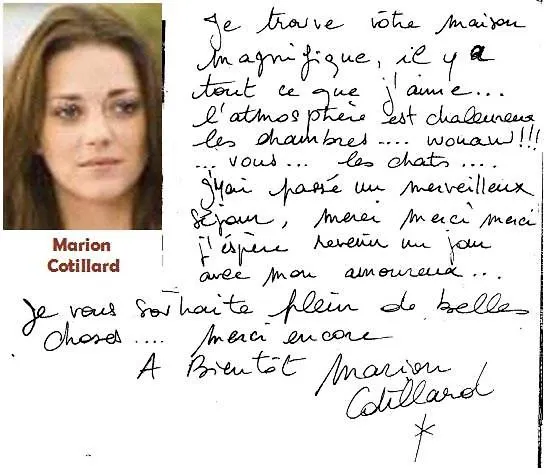 Je trouve vôtre maison
magnifique, il y a
tout ce que j'aime...
l'atmosphère est chaleureux
les chambres.... wouaw!!!
... vous... les chats....
j'y ai passé un merveilleux
séjour, merci merci merci
j'éspère revenir un jour
avec mon amoureux...
Je vous souhaite plein de belles
choses.... merci encore
A Bientôt Marion
Cotillard
Marion
Cotillard